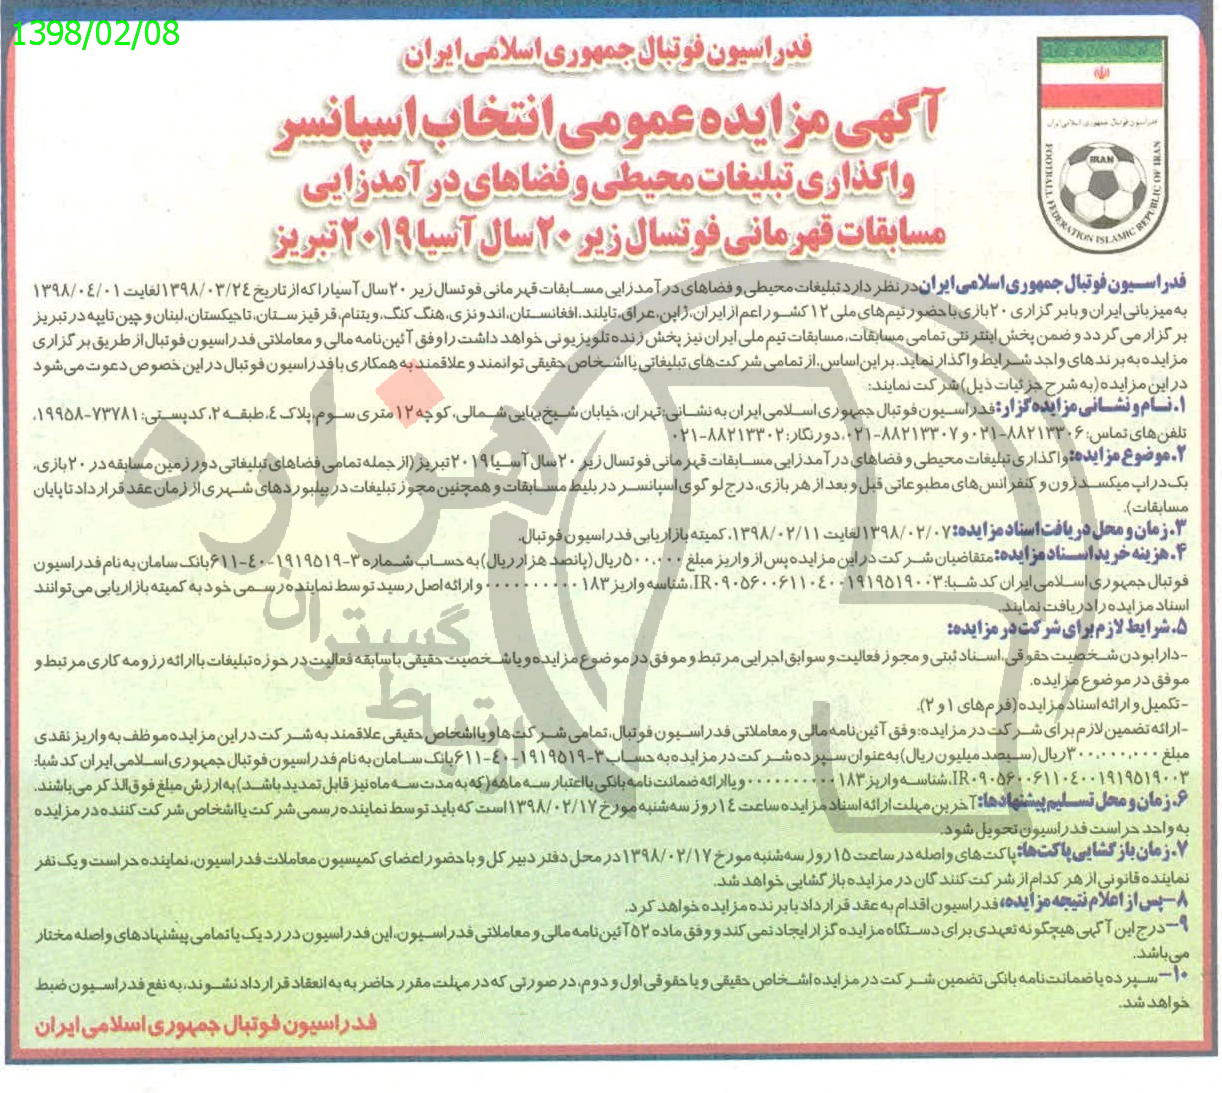 1398/02/08
فدراسیون فوتبال جمهوری اسلامی ایران
آگهی مزایده عمومی انتخاب اسپانسر
واگذاری تبلیغات محیطی و فضاهای درآمدزایی
مسابقات قهرمانی فوتسال زیر ۲۰ سال آسیا ۲۰۱۹ تبریز
فدراسیون فوتبال جمهوری اسلامی ایران
IRAN
FOOTBALL FEDERATION ISLAMIC REPUBLIC OF IRAN
فدراسیون فوتبال جمهوری اسلامی ایران در نظر دارد تبلیغات محیطی و فضاهای درآمدزایی مسابقات قهرمانی فوتسال زیر ۲۰ سال آسیا را که از تاریخ ۱۳۹۸/۰۳/۲۴ لغایت ۱۳۹۸/۰۴/۰۱
به میزبانی ایران و با برگزاری ۲۰ بازی با حضور تیم‌های ملی ۱۲ کشور اعم از ایران، ژاپن، عراق، تایلند، افغانستان، اندونزی، هنگ کنگ، ویتنام، قرقیزستان، تاجیکستان، لبنان و چین تایپه در تبریز
برگزار می گردد و ضمن پخش اینترنتی تمامی مسابقات، مسابقات تیم ملی ایران نیز پخش زنده تلویزیونی خواهد داشت را وفق آئین‌نامه مالی و معاملاتی فدراسیون فوتبال از طریق برگزاری
مزایده به برندهای واجد شرایط واگذار نماید. بر این اساس، از تمامی شرکت‌های تبلیغاتی یا اشخاص حقیقی توانمند و علاقمند به همکاری با فدراسیون فوتبال در این خصوص دعوت می‌شود
در این مزایده (به شرح جزئیات ذیل) شرکت نمایند:
۱. نام و نشانی مزایده گزار: فدراسیون فوتبال جمهوری اسلامی ایران به نشانی: تهران، خیابان شیخ بهایی شمالی، کوچه ۱۲ متری سوم، پلاک ۴، طبقه ۲، کدپستی: ۷۳۷۸۱-۱۹۹۵۸،
تلفن های تماس: ۸۸۲۱۳۳۰۶-۰۲۱ و ۸۸۲۱۳۳۰۷-۰۲۱، دورنگار: ۸۸۲۱۳۳۰۲-۰۲۱
۲. موضوع مزایده: واگذاری تبلیغات محیطی و فضاهای درآمدزایی مسابقات قهرمانی فوتسال زیر ۲۰ سال آسیا ۲۰۱۹ تبریز (از جمله تمامی فضاهای تبلیغاتی دور زمین مسابقه در ۲۰ بازی،
بک دراپ میکسدزون و کنفرانس‌های مطبوعاتی قبل و بعد از هر بازی، درج لوگوی اسپانسر در بلیط مسابقات و همچنین مجوز تبلیغات در بیلبوردهای شهری از زمان عقد قرارداد تا پایان
مسابقات).
۳. زمان و محل دریافت اسناد مزایده: ۱۳۹۸/۰۲/۰۷ لغایت ۱۳۹۸/۰۲/۱۱، کمیته بازاریابی فدراسیون فوتبال.
۴. هزینه خرید اسناد مزایده: متقاضیان شرکت در این مزایده پس از واریز مبلغ ۵۰۰,۰۰۰ ریال (پانصد هزار ریال) به حساب شماره ۳-۱۹۱۹۵۱۹-۴۰-۶۱۱ بانک سامان به نام فدراسیون
فوتبال جمهوری اسلامی ایران کد شبا: IR۰۹۰۵۶۰۰۶۱۱۰۴۰۰۱۹۱۹۵۱۹۰۰۳، شناسه واریز و ارائه اصل رسید توسط نماینده رسمی خود به کمیته بازاریابی می‌توانند
اسناد مزایده را دریافت نمایند.
۵. شرایط لازم برای شرکت در مزایده:
-دارا بودن شخصیت حقوقی، اسناد ثبتی و مجوز فعالیت و سوابق اجرایی مرتبط و موفق در موضوع مزایده و یا شخصیت حقیقی با سابقه فعالیت در حوزه تبلیغات با ارائه رزومه کاری مرتبط و
موفق در موضوع مزایده.
-تکمیل و ارائه اسناد مزایده (فرم‌های ۱ و ۲).
-ارائه تضمین لازم برای شرکت در مزایده: وفق آئین‌نامه مالی و معاملاتی فدراسیون فوتبال، تمامی شرکت‌ها و یا اشخاص حقیقی علاقمند به شرکت در این مزایده موظف به واریز نقدی
مبلغ ۳۰۰,۰۰۰,۰۰۰ ریال (سیصد میلیون ریال) به عنوان سپرده شرکت در مزایده به حساب ۳-۱۹۱۹۵۱۹-۴۰-۶۱۱ بانک سامان به نام فدراسیون فوتبال جمهوری اسلامی ایران کد شبا:
IR۰۹۰۵۶۰۰۶۱۱۰۴۰۰۱۹۱۹۵۱۹۰۰۳، شناسه واریز و یا ارائه ضمانت نامه بانکی با اعتبار سه ماهه (که به مدت سه ماه نیز قابل تمدید باشد) به ارزش مبلغ فوق الذکر می‌باشند.
۶. زمان و محل تسلیم پیشنهادها: آخرین مهلت ارائه اسناد مزایده ساعت ۱۴ روز سه شنبه مورخ ۱۳۹۸/۰۲/۱۷ است که باید توسط نماینده رسمی شرکت یا اشخاص شرکت کننده در مزایده
به واحد حراست فدراسیون تحویل شود.
۷. زمان بازگشایی پاکت‌ها: پاکت‌های واصله در ساعت ۱۵ روز سه شنبه مورخ ۱۳۹۸/۰۲/۱۷ در محل دفتر دبیرکل و با حضور اعضای کمیسیون معاملات فدراسیون، نماینده حراست و یک نفر
نماینده قانونی از هر کدام از شرکت کنندگان در مزایده بازگشایی خواهد شد.
۸-پس از اعلام نتیجه مزایده، فدراسیون اقدام به عقد قرارداد با برنده مزایده خواهد کرد.
۹-درج این آگهی هیچگونه تعهدی برای دستگاه مزایده گزار ایجاد نمی کند و وفق ماده ۵۲ آئین‌نامه مالی و معاملاتی فدراسیون، این فدراسیون در رد یک یا تمامی پیشنهادهای واصله مختار
می‌باشد.
۱۰-سپرده یا ضمانت نامه بانکی تضمین شرکت در مزایده اشخاص حقیقی و یا حقوقی اول و دوم، در صورتی که در مهلت مقرر حاضر به به انعقاد قرارداد نشوند، به نفع فدراسیون ضبط
خواهد شد.
فدراسیون فوتبال جمهوری اسلامی ایران
هزاره
گستران
ارتباط